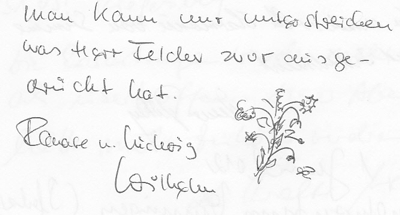 man kann nur unterstreichen
was Herr Felder zuvor ausge-
drückt hat.
Renate u. Ludwig
Wilhelm